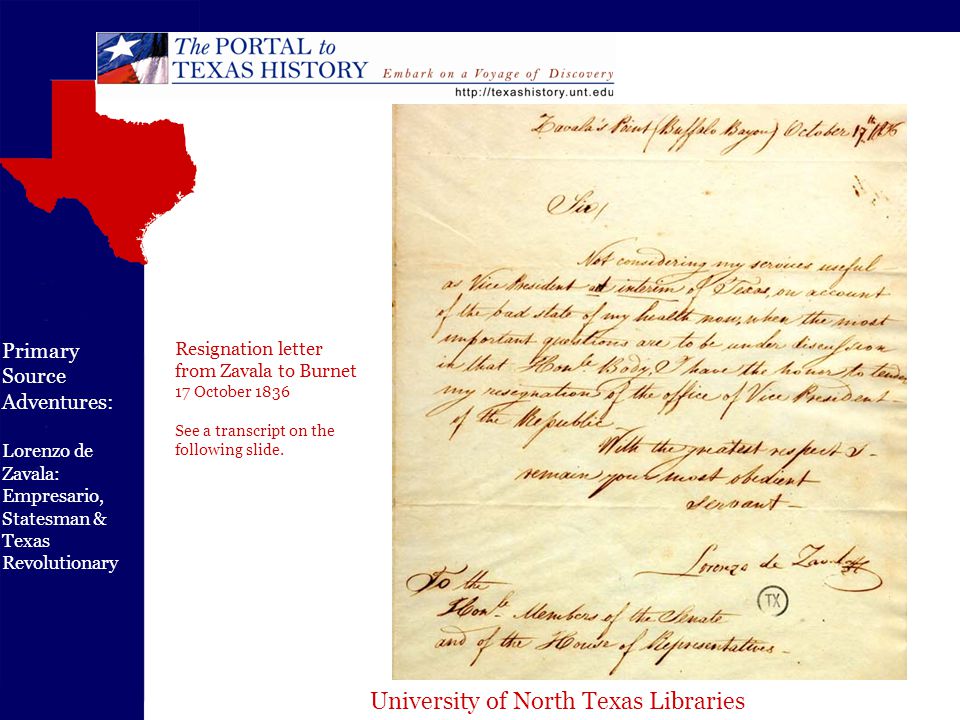 The PORTAL to
TEXAS HISTORY
Embark on a Voyage of Discovery
http://texashistory.unt.edu
Primary
Source
Adventures:
Lorenzo de
Zavala:
Empresario,
Statesman &
Texas
Revolutionary
Resignation letter
from Zavala to Burnet
17 October 1836
See a transcript on the
following slide.
Zavala's Point (Buffalo Bayou) October 17th 1836
Sir,
Not considering my services useful
as Vice President ad interim of Texas, on account
of the bad state of my health now, when the most
important questions are to be under discussion
in that Honble Body, I have the honor to tender
my resignation of the office of Vice President
of the Republic
With the greatest respect I
remain your most obedient
servant
Lorenzo de Zavala
TX
To the
Honble Members of the Senate
and of the House of Representatives
University of North Texas Libraries